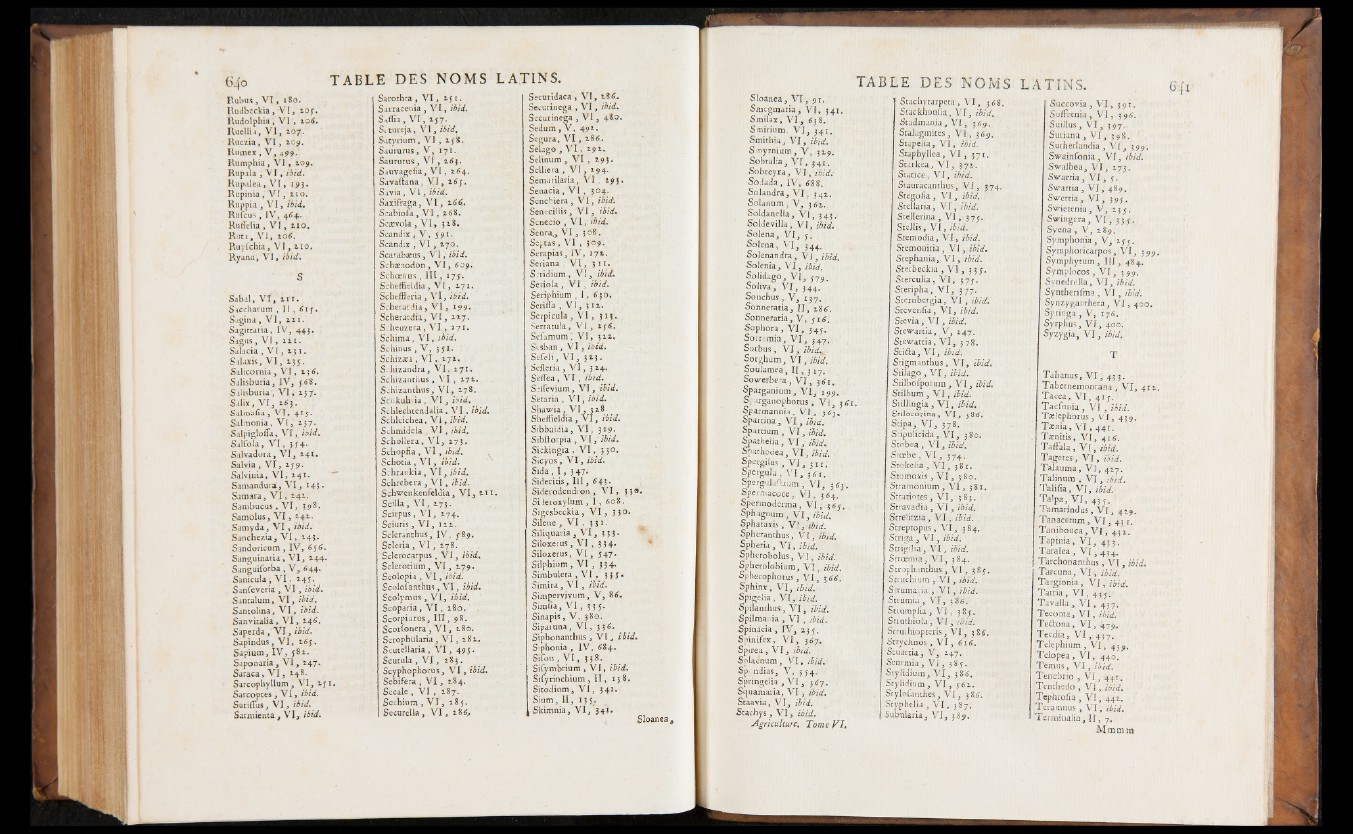 640
TABLE DES NOMS LATINS.
Rubus, VI, 180.
Rudbeckia, VI, 205.
Rudolphia, VI, 206.
Ruellia, VI, 207.
Ruezia, VI, 209.
Rumex, V, 499.
Rumphia, VI, 209.
Rupala, VI, ibid.
Rupalea, VI, 193.
Rupinia, VI, 210.
Ruppia, VI, ibid.
Ruscus, IV, 464.
Russelia, VI, 210.
Ruta, VI, 206.
Ruyschia, VI, 210.
Ryana, VI, ibid.
S
Sabal, VI, 211.
Saccharum, II, 615.
Sagina, VI, 221.
Sagittaria, IV, 443.
Sagus, VI, 222.
Salacia, VI, 231.
Salaxis, VI, 235.
Salicornia, VI, 236.
Salisburia, IV, 568.
Salisburia, VI, 237.
Salix, VI, 263.
Salmasia, VI, 415.
Salmonia, VI, 237.
Salpiglossa, VI, ibid.
Salsola, VI, 354.
Salvadora, VI, 241.
Salvia, VI, 259.
Salvinia, VI, 241.
Samandura, VI, 143.
Samara, VI, 242.
Sambucus, VI, 398.
Samolus, VI, 242.
Samyda, VI, ibid.
Sanchezia, VI, 243.
Sandoricum, IV, 656.
Sanguinaria, VI, 244.
Sanguisorba, V, 644.
Sanicula, VI, 245.
Sanseveria, VI, ibid.
Santalum, VI, ibid.
Santolina, VI, ibid.
Sanvitalia, VI, 246.
Saperda, VI, ibid.
Sapindus, VI, 265.
Sapium, IV, 582.
Saponaria, VI, 247.
Saraca, VI, 248.
Sarcophyllum, VI, 251.
Sarcoptes, VI, ibid.
Sarissus, VI, ibid.
Sarmienta, VI, ibid.
Sarothra, VI, 251.
Sarracenia, VI, ibid.
Sassia, VI, 257.
Satureja, VI, ibid.
Satyrium, VI, 258.
Saururus, V, 171.
Saururus, VI, 263.
Sauvagesia, VI, 264.
Savastana, VI, 265.
Savia, VI, ibid.
Saxifraga, VI, 266.
Scabiosa, VI, 268.
Scævola, VI, 328.
Scandix, V, 591.
Scandix, VI, 270.
Scarabæus, VI, ibid.
Schænodon, VI, 609.
Schœnus, III, 175.
Scheffieldia, VI, 271.
Scheffleria, VI, ibid.
Scherardia, VI, 199.
Scherardia, VI, 227.
Scheuzera, VI, 271.
Schima, VI, ibid.
Schinus, V, 351.
Schizæa, VI, 272.
Schizandra, VI, 271.
Schizanthus, VI, 272.
Schizanthus, VI, 278.
Schkuhria, VI, ibid.
Schlechtendalia, VI, ibid.
Schleichea, VI, ibid.
Schmidela, VI, ibid.
Schollera, VI, 273.
Schopfia, VI, ibid.
Schotia, VI, ibid.
Schrankia, VI, ibid.
Schrebera, VI, ibid.
Schwenkenfeldia, VI, 211.
Scilla, VI, 273.
Scirpus, VI, 274.
Sciuris, VI, 122.
Scleranthus, IV, 589.
Scleria, VI, 278.
Sclerocarpus, VI, ibid.
Sclerotium, VI, 279.
Scolopia, VI, ibid.
Scolosanthus, VI, ibid.
Scolymus, VI, ibid.
Scoparia, VI, 280.
Scorpiurus, III, 98.
Scorsonera, VI, 280.
Scrophularia, VI, 282.
Scutellaria, VI, 495.
Scutula, VI, 283.
Scyphophorus, VI, ibid.
Sebifera, VI, 284.
Secale, VI, 287.
Sechium, VI, 285.
Securella, VI, 286.
Securidaca, VI, 286.
Securinega, VI, ibid.
Securinega, VI, 480.
Sedum, V, 492.
Segura, VI, 286.
Selago, VI, 292.
Selinum, VI, 293.
Selliera, VI, 294.
Semarilaria, VI, 293.
Senacia, VI, 304.
Senebiera, VI, ibid.
Senecillis, VI, ibid.
Senecio, VI, ibid.
Senra, VI, 308.
Septas, VI, 309.
Serapias, IV, 172.
Seriana, VI, 311.
Seridium, VI, ibid.
Seriola, VI, ibid.
Seriphium, I, 630.
Serissa, VI, 312.
Serpicula, VI, 313.
Serratula, VI, 256.
Sesamum, VI, 322.
Sesban, VI, ibid.
Seseli, VI, 323.
Sesleria, VI, 324.
Sessea, VI, ibid.
Sessevium, VI, ibid.
Setaria, VI, ibid.
Shawia, VI, 328.
Sheffieldia, VI, ibid.
Sibbaldia, VI, 329.
Sibthorpia, VI, ibid.
Sickingia, VI, 330.
Sicyos, VI, ibid.
Sida, I, 347.
Sideritis, III, 643.
Siderodendron, VI, 330.
Sideroxylum, I, 608.
Sigesbeckia, VI, 330.
Silene, VI, 331.
Siliquaria, VI, 333.
Siloxerus, VI, 334.
Siloxerus, VI, 547.
Silphium, VI, 334.
Simbulera, VI, 335.
Simira, VI, ibid.
Simpervivum, V, 86.
Simsia, VI, 335.
Sinapis, V, 380.
Siparuna, VI, 336.
Siphonanthus, VI, ibid.
Siphonia, IV, 684.
Sison, VI, 338.
Sisymbrium, VI, ibid.
Sisyrinchium, II, 138.
Sitodium, VI, 341.
Sium, II, 135.
Skimnia, VI, 341.
Sloanea,
TABLE DES NOMS LATINS.
641
Sloanea, VI, 91.
Smegmaria, VI, 341.
Smilax, VI, 638.
Smirium, VI, 341.
Smithia, VI, ibid.
Smyrnium, V, 329.
Sobralia, VI, 341.
Sobreyra, VI, ibid.
Sodada, IV, 688.
Solandra, VI, 342.
Solanum, V, 362.
Soldanella, VI, 343.
Soldevilla, VI, ibid.
Solena, VI, 5.
Solena, VI, 344.
Solenandra, VI, ibid.
Solenia, VI, ibid.
Solidago, VI, 579.
Soliva, VI, 344.
Sonchus, V, 137.
Sonneratia, II, 286.
Sonneratia, V, 516.
Sophora, VI, 345.
Soramia, VI, 347.
Sorbus, VI, ibid.
Sorghum, VI, ibid.
Soulamea, II, 317.
Sowerbera, VI, 361.
Sparganium, VI, 199.
Sparganophorus, VI, 361.
Sparmannia, VI, 363.
Spartina, VI, ibid.
Spartium, VI, ibid.
Spathelia, VI, ibid.
Spathodea, VI, ibid.
Spergilus, VI, 311.
Spergula, VI, 361.
Spergulastrum, VI, 363.
Spermacoce, VI, 364.
Spermoderma, VI, 365.
Sphagnum, VI, ibid.
Spharaxis, VI, ibid.
Spheranthus, VI, ibid.
Spheria, VI, ibid.
Spherobolus, VI, ibid.
Spherolobium, VI, ibid.
Spherophorus, VI, 366.
Sphinx, VI, ibid.
Spigelia, VI, ibid.
Spilanthus, VI, ibid.
Spilmania, VI, ibid.
Spinacia, IV, 235.
Spinifex, VI, 367.
Spirea, VI, ibid.
Splachnum, VI, ibid.
Spondias, V, 554.
Sprengelia, VI, 367.
Squamaria, VI, ibid.
Staavia, VI, ibid.
Stachys, VI, ibid.
Agriculture. Tome VI.
Stachytarpeta, VI, 368.
Stackhousia, VI, ibid.
Stadmania, VI, 369.
Stalagmites, VI, 369.
Stapelia, VI, ibid.
Staphyllea, VI, 371.
Starkea, VI, 372.
Statice, VI, ibid.
Stauracanthus, VI, 374.
Stegosia, VI, ibid.
Stellaria, VI, ibid.
Stellerina, VI, 375.
Stellis, VI, ibid.
Stemodia, VI, ibid.
Stemonitia, VI, ibid.
Stephania, VI, ibid.
Sterbeckia, VI, 335.
Sterculia, VI, 375.
Steripha, VI, 377.
Sternbergia, VI, ibid.
Stevensia, VI, ibid.
Stevia, VI, ibid.
Stewartia, V, 247.
Stewartia, VI, 378.
Sticta, VI, ibid.
Stigmanthus, VI, ibid.
Stilago, VI, ibid.
Stilbosporum, VI, ibid.
Stilbum, VI, ibid.
Stillingia, VI, ibid.
Stipa, VI, 378.
Stipulicida, VI, 380.
Stobea, VI, ibid.
Stœbe, VI, 374.
Stokesia, VI, 381.
Stomoxis, VI, 380.
Stramonium, VI, 381.
Stratiotes, VI, 383.
Stravadia, VI, ibid.
Strelitzia, VI, ibid.
Streptopus, VI, 384.
Striga, VI, ibid.
Strigilia, VI, ibid.
Strœmia, VI, 384.
Strophanthus, VI, 385.
Struchium, VI, ibid.
Strumaria, VI, ibid.
Strumia, VI, 386.
Strumpfia, VI, 385.
Struthiola, VI, ibid.
Struthiopteris, VI, 386.
Strychnos, VI, 616.
Stuartia, V, 247.
Sturmia, VI, 385.
Stylidium, VI, 386.
Stylidium, VI, 562.
Stylosanthes, VI, 386.
Styphelia, VI, 387.
Subularia, VI, 389.
Succovia, VI, 391.
Suffrenia, VI, 396.
Suillus, VI, 397.
Suriana, VI, 398.
Sutherlandia, VI, 399.
Swainsonia, VI, ibid.
Swalbea, VI, 273.
Swartia, VI, 5.
Swartia, VI, 489.
Swertia, VI, 395.
Swietenia, V, 235.
Swingera, VI, 335.
Syena, V, 289.
Symphonia, V, 255.
Symphoricarpos, VI, 399.
Symphytum, III, 484.
Symplocos, VI, 399.
Synedrella, VI, ibid.
Syntherisma, VI, ibid.
Synzyganthera, VI, 400.
Syringa, V, 176.
Syrphus, VI, 400.
Syzygia, VI, ibid.
T
Tabanus, VI, 433.
Tabernemontana, VI, 412.
Tacca, VI, 415.
Tacsonia, VI, ibid.
Tælephorus, VI, 439.
Tænia, VI, 441.
Tænitis, VI, 416.
Taffala, VI, ibid.
Tagetes, VI, ibid.
Talauma, VI, 427.
Talinum, VI, ibid.
Talisia, VI, ibid.
Talpa, VI, 435.
Tamarindus, VI, 429.
Tanacetum, VI, 431.
Tanibouca, VI, 432.
Tapinia, VI, 433.
Taralea, VI, 434.
Tarchonanthus, VI, ibid.
Tarcuna, VI, ibid.
Targionia, VI, ibid.
Tatria, VI, 435.
Tavalla, VI, 437.
Tecoma, VI, ibid.
Tectona, VI, 479.
Teedia, VI, 437.
Telephium, VI, 439.
Telopea, VI, 440.
Temus, VI, ibid.
Tenebrio, VI, 441.
Tenthedo, VI, ibid.
Tephrosia, VI, 442.
Teramnus, VI, ibid.
Terminalia, II, 7.
Mmmm